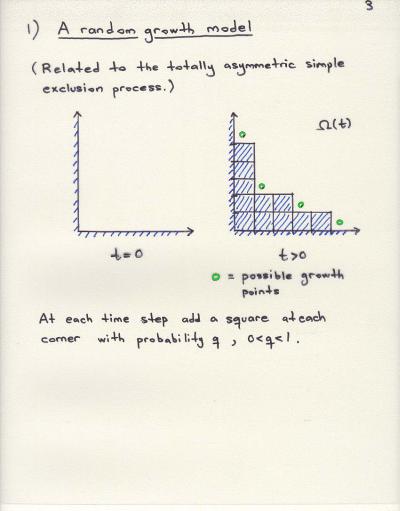 3
1) A random growth model
(Related to the totally asymmetric simple
exclusion process.)
Ω(t)
t=0
t>0
o = possible growth
points
At each time step add a square at each
corner with probability q, 0<q<1.